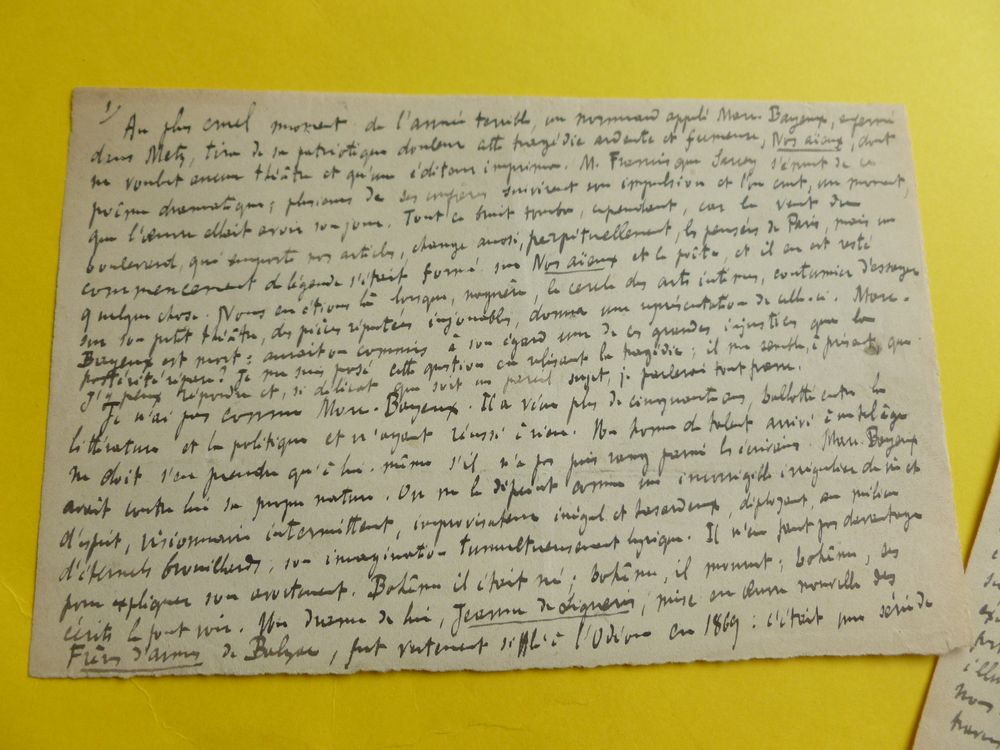 1/
Au plus cruel moment de l'année terrible, un normand appelé Marc-Bayeux, enfermé
dans Metz, tira de sa patriotique douleur cette tragédie ardente et fumeuse, Nos aïeux, dont
ne voulut aucun théâtre et qu'un éditeur imprima. M. Francisque Sarcey s'éprit de ce
poème dramatique; plusieurs de ses confrères suivirent son impulsion et l'on crut, un moment,
que l'œuvre allait avoir son jour. Tout ce bruit tomba, cependant, car le vent du
boulevard, qui emporte nos articles, change aussi, perpétuellement, les pensées de Paris, mais un
commencement de légende s'était formé sur Nos aïeux et le poète, et il en est resté
quelque chose. Nous en étions là lorsque, naguère, le cercle des arts intimes, coutumier d'essayer
sur son petit théâtre, des pièces réputées injouables, donna une représentation de celle-ci. Marc-
Bayeux est mort: aurait-on commis à son égard une de ces grandes injustices que la
postérité répare? Je me suis posé cette question en relisant la tragédie; il me semble, à présent, que
j'y peux répondre et, si délicat que soit un pareil sujet, je parlerai tout franc.
Je n'ai pas connu Marc-Bayeux. Il a vécu plus de cinquante ans, ballotté entre la
littérature et la politique et n'ayant réussi à rien. Un homme de talent arrivé à un tel âge
ne doit s'en prendre qu'à lui-même s'il n'a pas pris rang parmi les écrivains. Marc-Bayeux
avait contre lui sa propre nature. On me le dépeint comme un incorrigible irrégulier de vie et
d'esprit, visionnaire intermittent, improvisateur inégal et hasardeux, déployant, au milieu
d'éternels brouillards, son imagination tumultueusement lyrique. Il n'en faut pas davantage
pour expliquer son avortement. Bohême il était né; bohême, il mourut; bohême, ses
écrits le font voir. Un drame de lui, Jeanne de Ligneris, mise en œuvre nouvelle des
Frères d'armes de Balzac, fut vertement sifflé à l'Odéon en 1869: c'était une série de